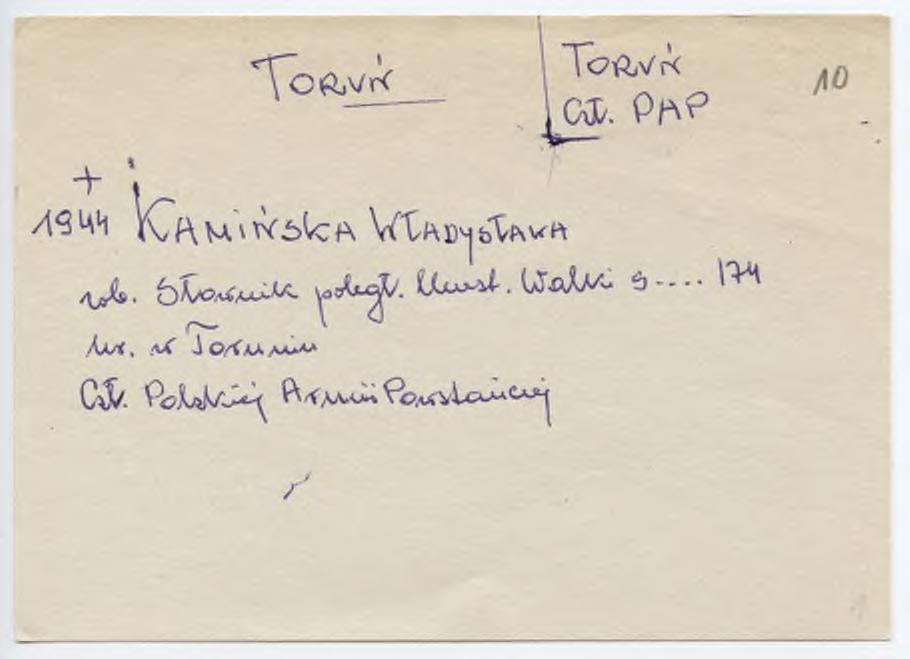 TORUŃ
TORUŃ
Czł. PAP
10
+
1944 KAMIŃSKA WŁADYSŁAWA
rob. Słownik poległ. Uczest. Walki s.... 174
ur. w Toruniu
Czł. Polskiej Armii Powstańczej